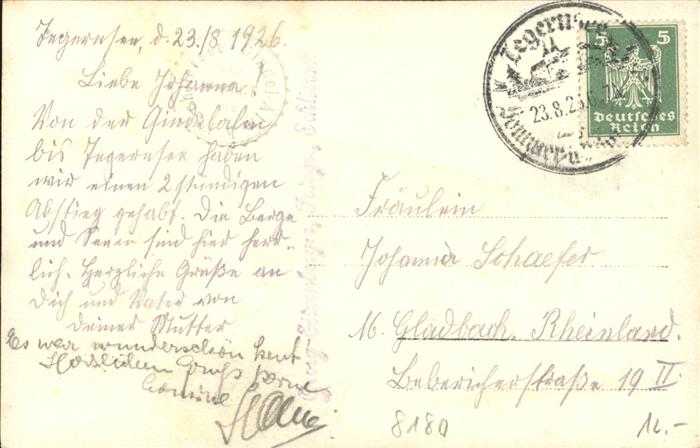 Tegernsee, d. 23./8 1926.
Liebe Johanna!
Von der Gindelalm
bis Tegernsee haben
wir einen 2 stündigen
Abstieg gehabt. Die Berge
und Seen sind hier herr-
lich. Herzliche Grüße an
Dich und Vater von
Deiner Mutter
Es war wunderschön heut!
Herzlichen Gruß
Tegernsee
23.8.26.
5 5
Deutsches
Reich
Fräulein
Johanna Schaefer.
M. Gladbach. Rheinland.
Bebericherstraße 19 II
8180
12.-